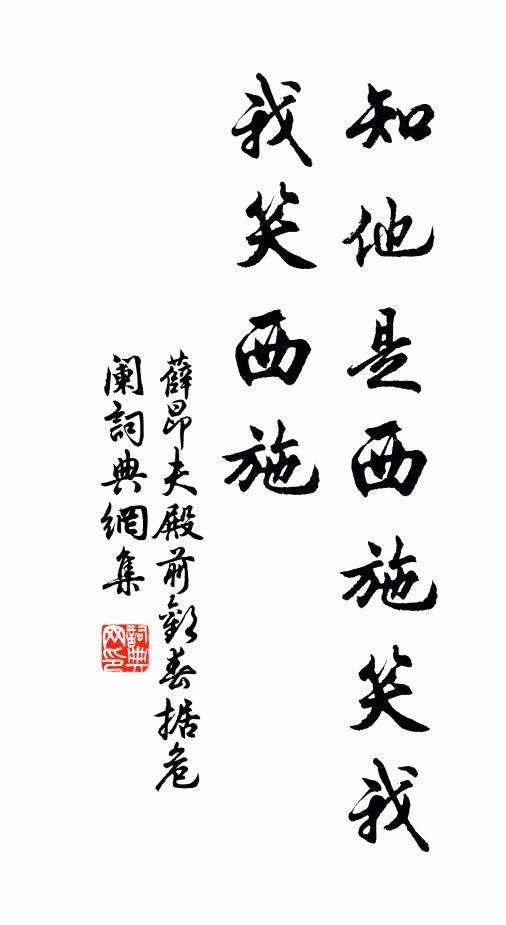 知他是西施笑我
我笑西施
薛昂夫殿前歡春据危
闌詞典網集
詞典
网印